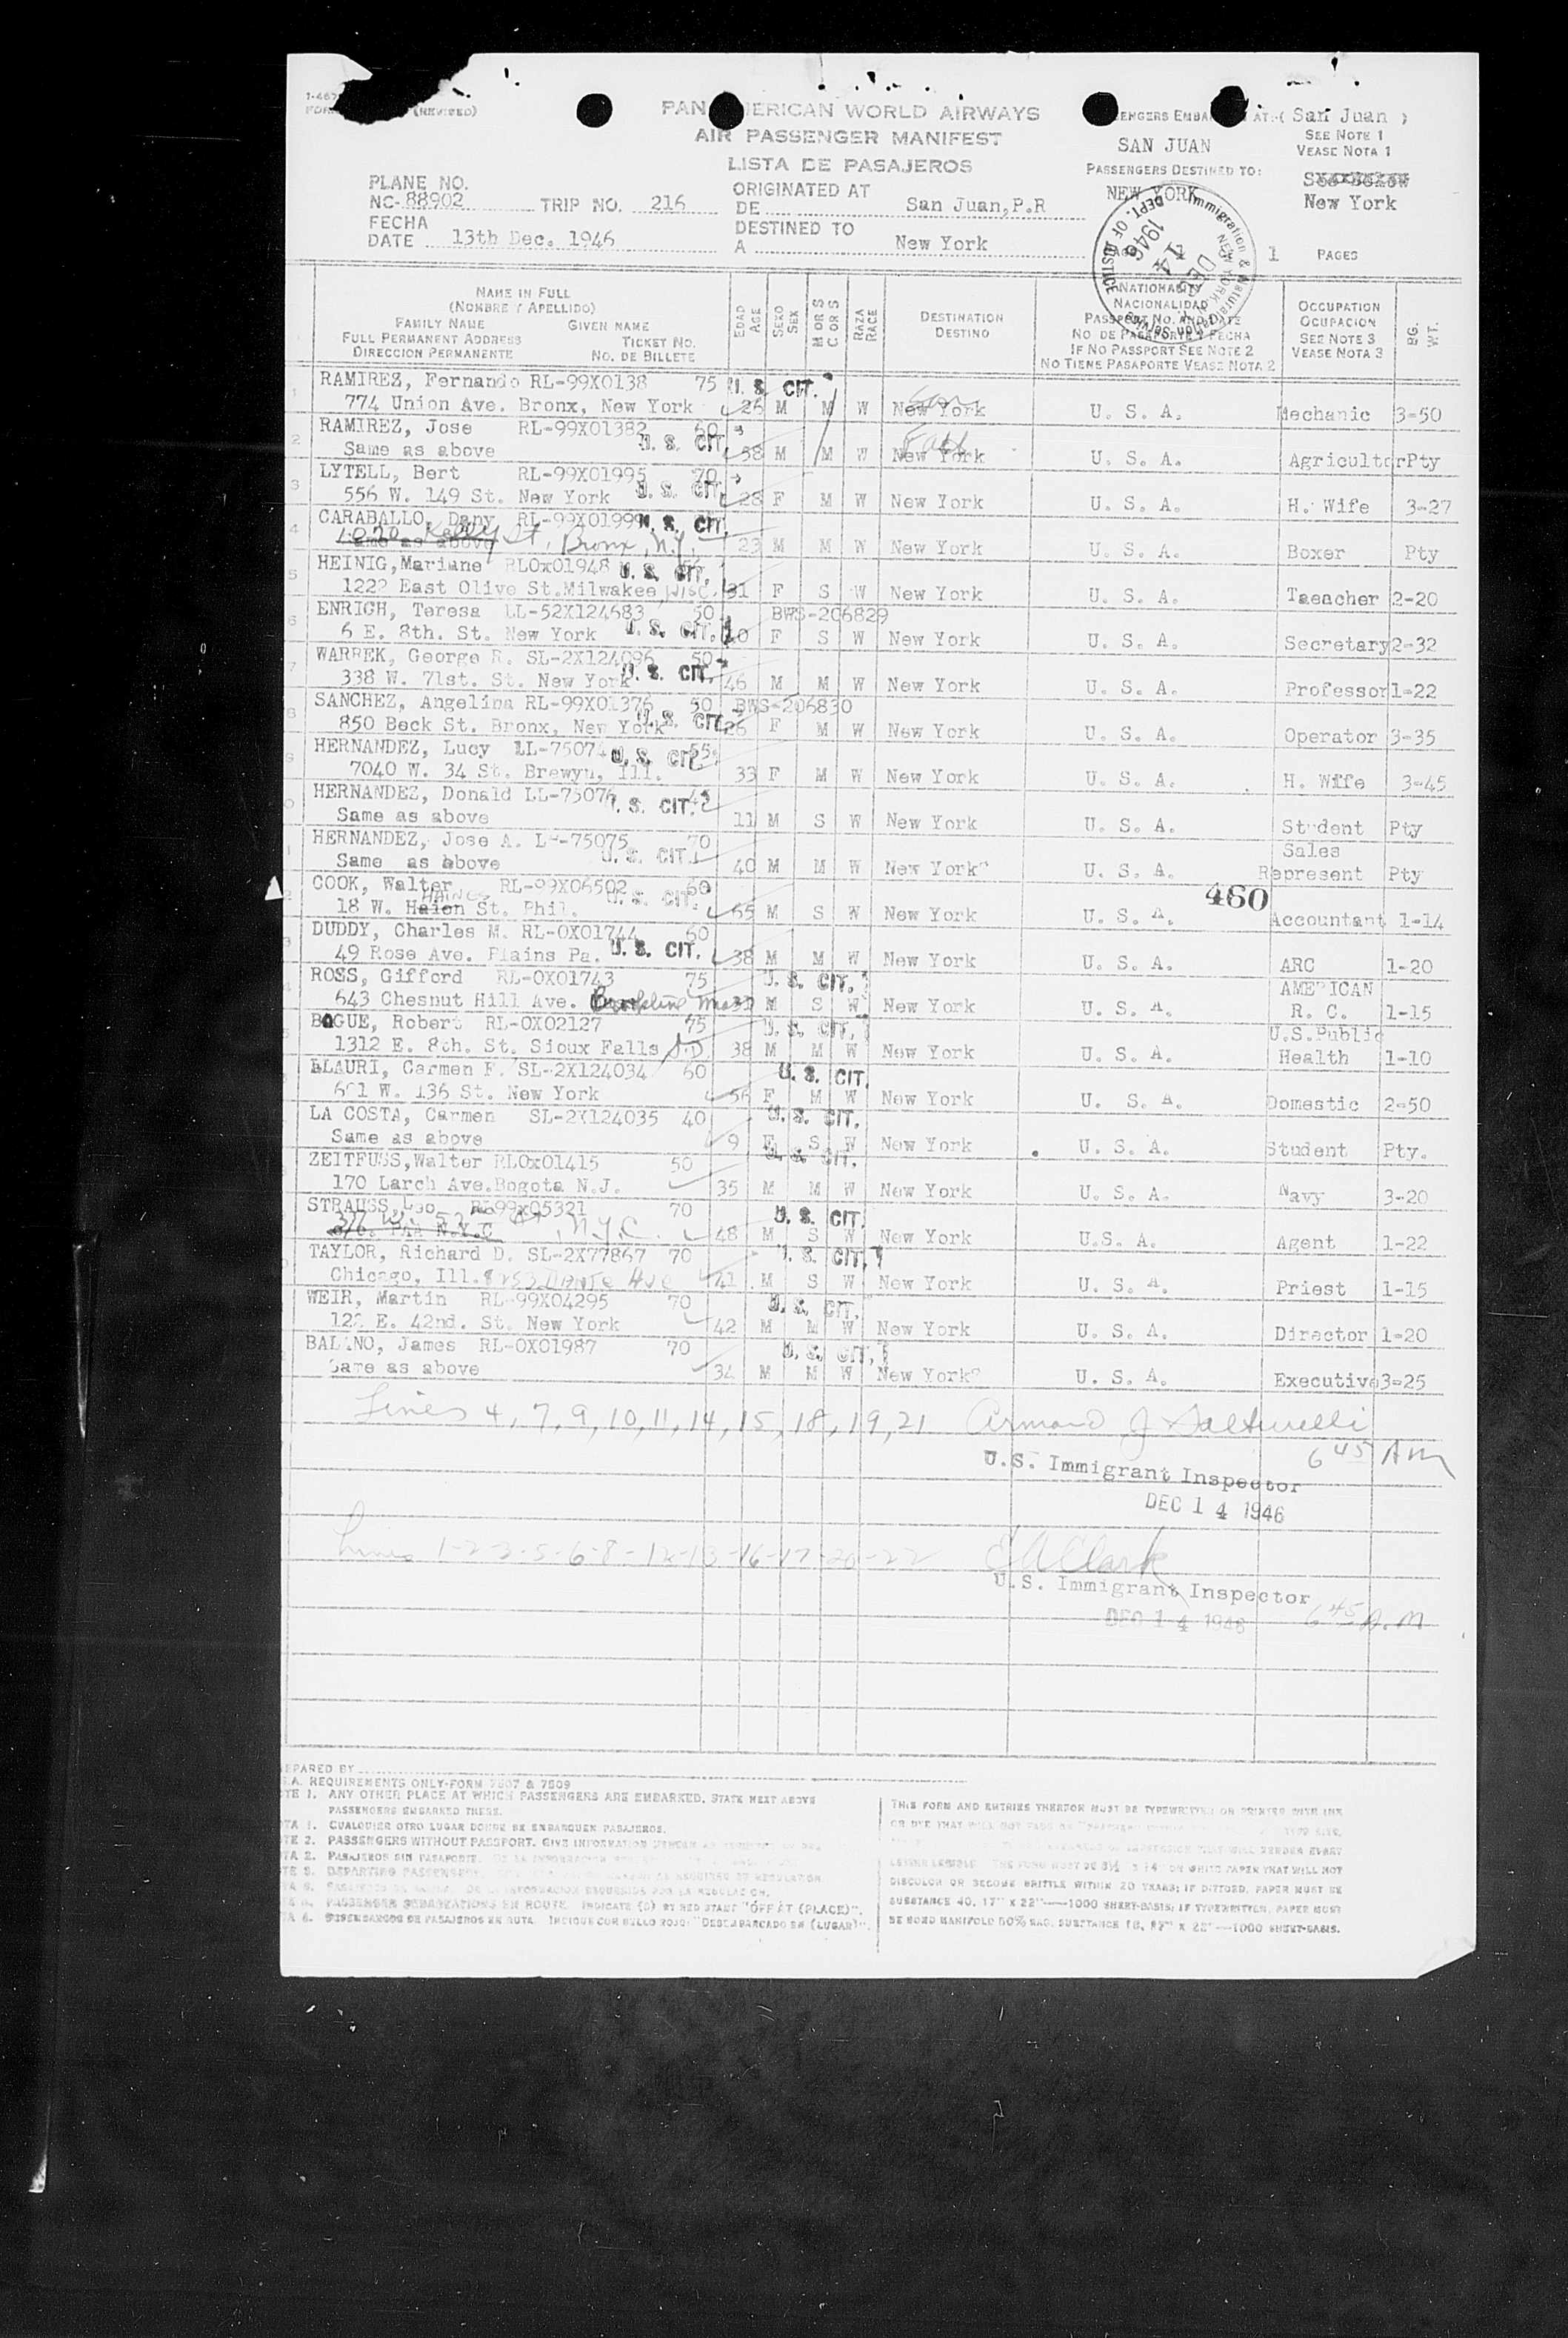 (REVISED)
PAN AMERICAN WORLD AIRWAYS
AIR PASSENGER MANIFEST
LISTA DE PASAJEROS
AT:-( San Juan )
SEE NOTE 1
VEASE NOTA 1
SAN JUAN
PASSENGERS DESTINED TO:
NEW YORK
New York
PLANE NO.
NC-88902 TRIP NO. 216
FECHA
DATE 13th Dec. 1946
ORIGINATED AT
DE San Juan,P.R
DESTINED TO
A New York
1 PAGES
NAME IN FULL
(NOMBRE Y APELLIDO)
FAMILY NAME GIVEN NAME
FULL PERMANENT ADDRESS TICKET NO.
DIRECCION PERMANENTE NO. DE BILLETE
EDAD AGE
SEXO SEX
M OR S C OR S
RAZA RACE
DESTINATION
DESTINO
NATIONALITY
NACIONALIDAD
PASSPORT NO. AND DATE
NO. DE PASAPORTE Y FECHA
IF NO PASSPORT SEE NOTE 2
NO TIENE PASAPORTE VEASE NOTA 2
OCCUPATION
OCUPACION
SEE NOTE 3
VEASE NOTA 3
BG. WT.
RAMIREZ, Fernando RL-99X0138 75 U. S. CIT.
774 Union Ave. Bronx, New York 26 M M W New York U. S. A. Mechanic 3-50
RAMIREZ, Jose RL-99X01382 60 U. S. CIT.
Same as above 58 M M W New York U. S. A. Agricultor Pty
LYTELL, Bert RL-99X01995 70
556 W. 149 St. New York U. S. CIT. 28 F M W New York U. S. A. H. Wife 3-27
CARABALLO, Dany RL-99X01999 U. S. CIT.
Same as above Kelly St, Bronx, N.Y. 23 M M W New York U. S. A. Boxer Pty
HEINIG,Mariane RLOx01948 U. S. CIT.
1222 East Olive St.Milwakee,Wisc. 31 F S W New York U. S. A. Taeacher 2-20
ENRICH, Teresa LL-52X124683 50 BWS-206829
6 E. 8th. St. New York U. S. CIT. 40 F S W New York U. S. A. Secretary 2-32
WARREK, George R. SL-2X124096 50
338 W. 71st. St. New York U. S. CIT. 46 M M W New York U. S. A. Professor 1-22
SANCHEZ, Angelina RL-99X01376 50 BWS-206830
850 Beck St. Bronx, New York U. S. CIT. 26 F M W New York U. S. A. Operator 3-35
HERNANDEZ, Lucy LL-75074 55 U. S. CIT.
7040 W. 34 St. Brewyn, Ill. 33 F M W New York U. S. A. H. Wife 3-45
HERNANDEZ, Donald LL-75076 U. S. CIT.
Same as above 11 M S W New York U. S. A. Student Pty
HERNANDEZ, Jose A. LL-75075 70 Sales
Same as above U. S. CIT. 40 M M W New York U. S. A. Represent Pty
COOK, Walter RL-99X06502 60 460
18 W. Haien HAINES St. Phil. U. S. CIT. 65 M S W New York U. S. A. Accountant 1-14
DUDDY, Charles M. RL-OX01744 60
49 Rose Ave. Plains Pa. U. S. CIT. 38 M M W New York U. S. A. ARC 1-20
ROSS, Gifford RL-OX01743 75 U. S. CIT. AMERICAN
643 Chesnut Hill Ave. Brookline Mass M S W New York U. S. A. R. C. 1-15
BOGUE, Robert RL-OX02127 75 U. S. CIT. U.S.Public
1312 E. 8th. St. Sioux Falls S.D. 38 M M W New York U. S. A. Health 1-10
BLAURI, Carmen F. SL-2X124034 60 U. S. CIT.
601 W. 136 St. New York 56 F M W New York U. S. A. Domestic 2-50
LA COSTA, Carmen SL-2X124035 40 U. S. CIT.
Same as above 9 F S W New York U. S. A. Student Pty.
ZEITFUSS,Walter RLOx01415 50 U. S. CIT.
170 Larch Ave.Bogota N.J. 35 M M W New York U. S. A. Navy 3-20
STRAUSS,Leo RL99x05321 70 U. S. CIT.
c/o. PAA N.Y.C N.Y.C. 48 M S W New York U.S. A. Agent 1-22
TAYLOR, Richard D. SL-2X77867 70 U. S. CIT.
Chicago, Ill. 8253 DANTE AVE 41 M S W New York U. S. A. Priest 1-15
WEIR, Martin RL-99X04295 70 U. S. CIT.
122 E. 42nd. St. New York 42 M M W New York U. S. A. Director 1-20
BALINO, James RL-OX01987 70 U. S. CIT.
Same as above 34 M M W New York U. S. A. Executive 3-25
Lines 4, 7, 9, 10, 11, 14, 15, 18, 19, 21 Armand J
6 45 AM
U.S. Immigrant Inspector
DEC 14 1946
Lines 1-2-3-5-6-8-12-13-16-17-20-22 E A Clark
U.S. Immigrant Inspector
DEC 14 1946 6 45 A.M
PREPARED BY
REQUIREMENTS ONLY-FORM 7507 & 7509
NOTE 1. ANY OTHER PLACE AT WHICH PASSENGERS ARE EMBARKED, STATE NEXT ABOVE
PASSENGERS EMBARKED THERE.
NOTA 1. CUALQUIER OTRO LUGAR DONDE SE EMBARQUEN PASAJEROS.
NOTE 2. PASSENGERS WITHOUT PASSPORT. GIVE INFORMATION
NOTA 2. PASAJEROS SIN PASAPORTE.
DEPARTING PASSENGERS.
PASSENGER DEBARKATIONS EN ROUTE. INDICATE (S) BY RED STAMP "OFF AT (PLACE)".
DESEMBARCOS DE PASAJEROS EN RUTA. INDIQUE CON SELLO ROJO: "DESEMBARCADO EN (LUGAR)".
THIS FORM AND ENTRIES THEREON MUST BE TYPEWRITTEN OR PRINTED WITH INK
LETTER LEGIBLE. THE FORM MUST BE 8½ x 14 ON WHITE PAPER THAT WILL NOT
DISCOLOR OR BECOME BRITTLE WITHIN 20 YEARS; IF DITTOED, PAPER MUST BE
SUBSTANCE 40, 17" X 22"—1000 SHEET-BASIS; IF TYPEWRITTEN, PAPER MUST
BE BOND MANIFOLD 50% RAG, SUBSTANCE 18, 17" X 22"—1000 SHEET-BASIS.